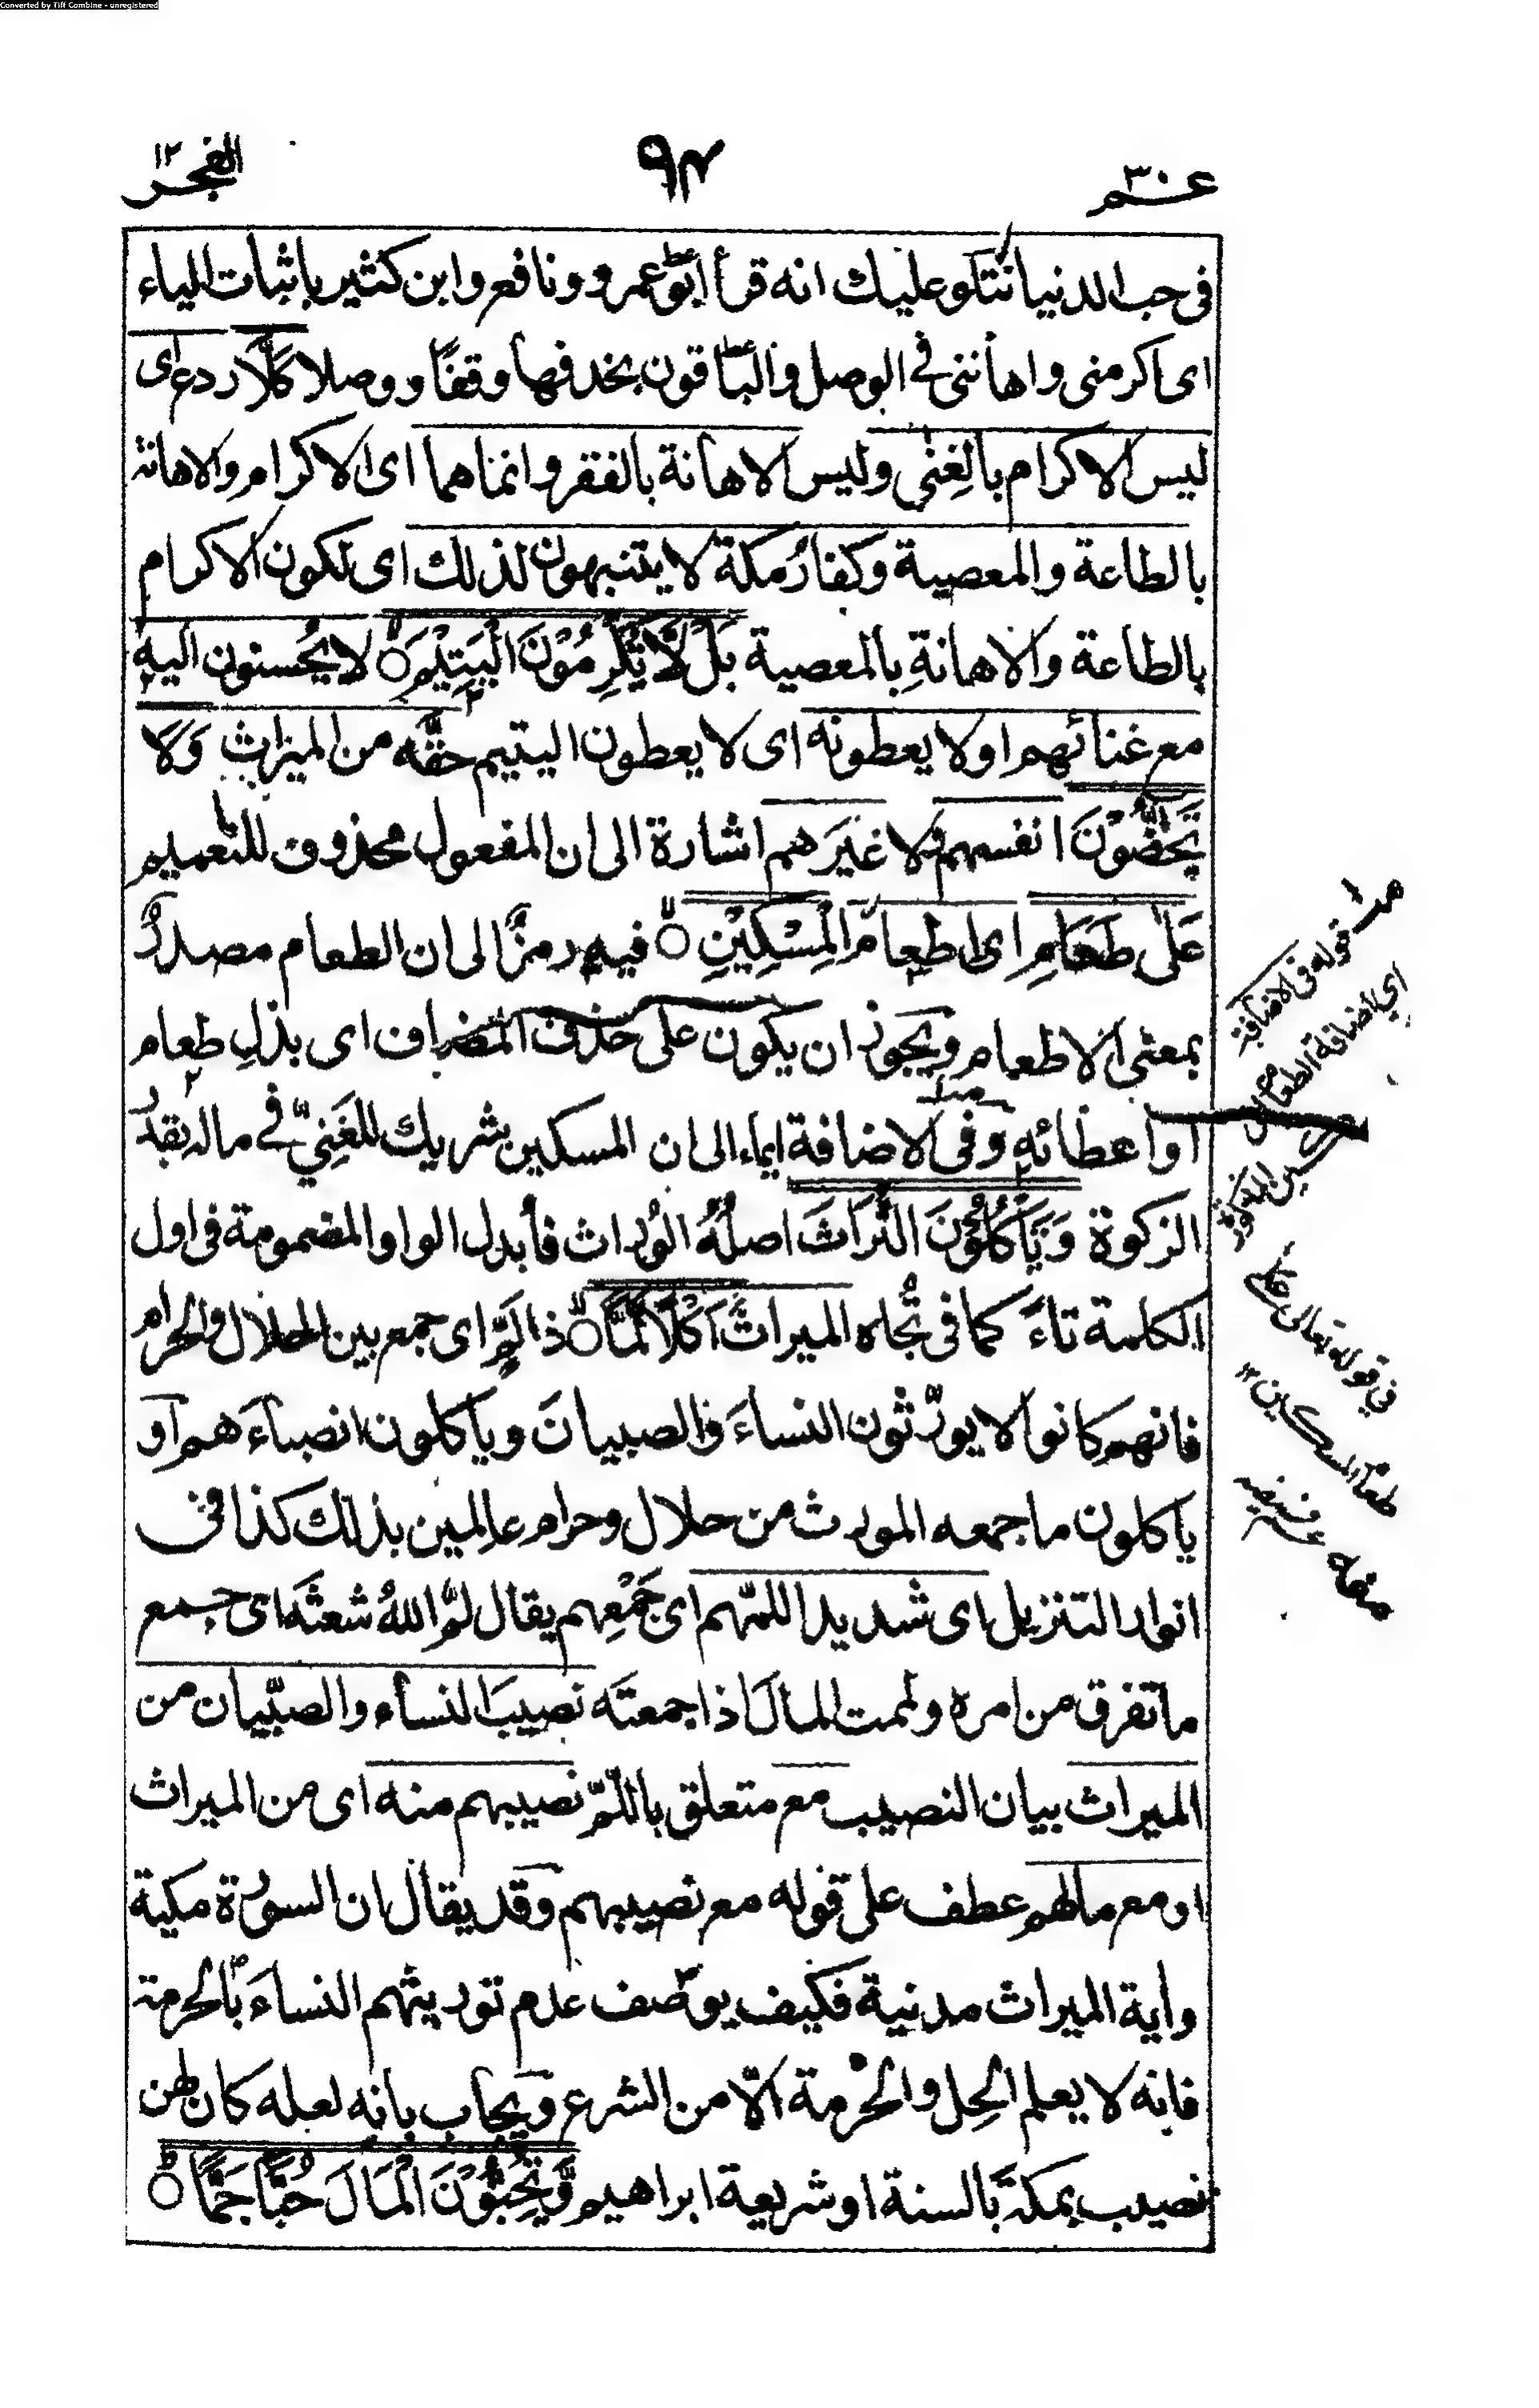 Converted by Tiff Combine - unregistered
عم ٣٠
٩٤
الفجر ١٢
فى حب الدنيا نتلو عليك انه قرأ ابو عمرو ونافع وابن كثير باثبات الياء
اى اكرمنى واهاننى فى الوصل والباقون بحذفها وقفًا ووصلا كَلَّا ردع اى
ليس الاكرام بالغنى وليس الاهانة بالفقر وانما هما اى الاكرام والاهانة
بالطاعة والمعصية وكفار مكة لا يتنبهون لذلك اى لكون الاكرام
بالطاعة والاهانةِ بالمعصية بَلْ لَّا تُكْرِمُوْنَ الْيَتِيْمَ لا يُحسنون اليه
مع غنائهم اولا يعطونه اى لا يعطون اليتيم حقَّه من الميراث وَلَا
تَحٰضُّوْنَ انفسهم ولا غيرَهم اشارة الى ان المفعول محذوف للتعميم
عَلٰى طَعَامِ اى اطعام الْمِسْكِيْنِ فيه رمزٌ الى ان الطعام مصدرٌ
بمعنى الاطعام ويجوز ان يكون على حذف المضاف اى بذلِ طعام
او اعطائه وفى الاضافة ايماء الى ان المسكين شريك للغَنِيِّ فى ماله بقدر
الزكوة وَتَأْكُلُوْنَ التُّرَاثَ اصلُهُ الوُراث فأبدل الواو المضمومة فى اول
الكلمة تاءً كما فى تُجاه الميراثَ اَكْلًا لَّمًّا ذا لمٍّ اى جمع بين الحلال والحرام
فانهم كانوا لا يورّثون النساءَ والصبيانَ وياكلون انصباءَهم او
ياكلون ما جمعه المورث من حلال وحرام عالِمين بذلك كذا فى
انوار التنزيل اى شديدا للمّهم اى جَمْعِهم يقال لمَّ اللهُ شعثَه اى جمع
ما تفرق من امره ولممت المالَ اذا جمعتَه نصيبَ النساء والصبيان من
الميراث بيان النصيب مع متعلق باللّمّ نصيبهم منه اى من الميراث
او مع مالهم عطف على قوله مع نصيبهم وقد يقال ان السورة مكية
وأية الميراث مدنية فكيف يوصف عدم توريثهم النساءَ بالحرمة
فانه لا يعلم الحِل والحُرمة الّا من الشرع ويجاب بانه لعله كان لهن
نصيب بمكة بالسنة او شريعة ابراهيم وَّتُحِبُّوْنَ الْمَالَ حُبًّا جَمًّا
قوله فى الاضافة
اى اضافة الطعام
فى قوله تعالى على
طعام المسكين ١٢